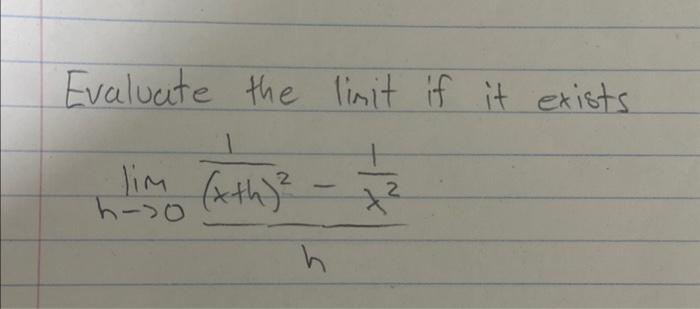 Evaluate the limit if it exists
lim h->0 \frac{\frac{1}{(x+h)^2} - \frac{1}{x^2}}{h}